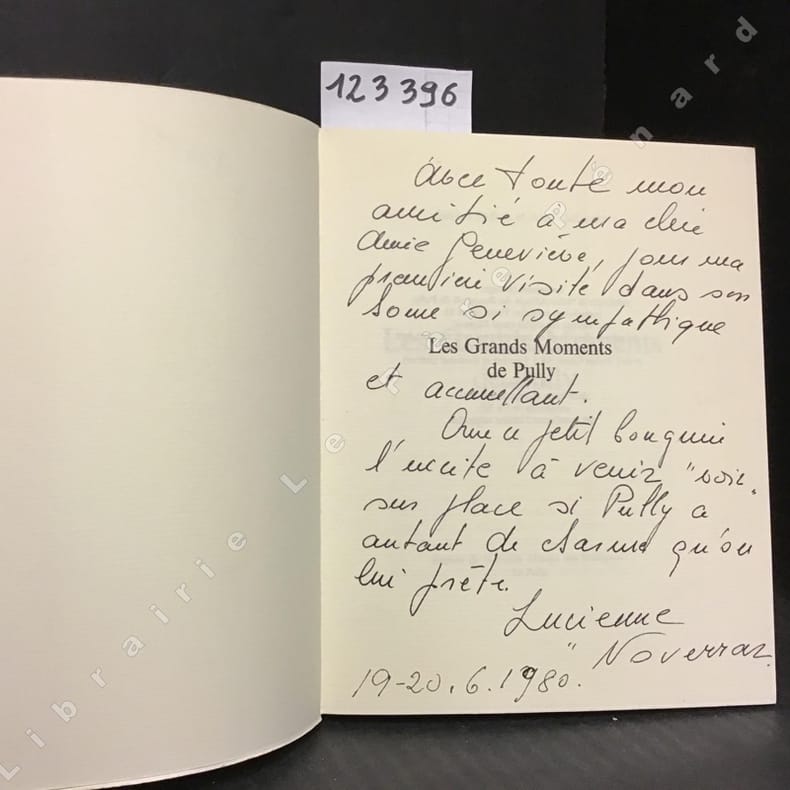 123 396
Avec toute mon
amitié à ma chère
Amie Geneviève, pour ma
première visite dans son
home si sympathique
Les Grands Moments
de Pully
et accueillant.
Que ce petit bouquin
l'incite à venir "voir"
sur place si Pully a
autant de charme qu'on
lui prête.
Lucienne
Noverraz.
19-20.6.1980.
Librairie Le Renard